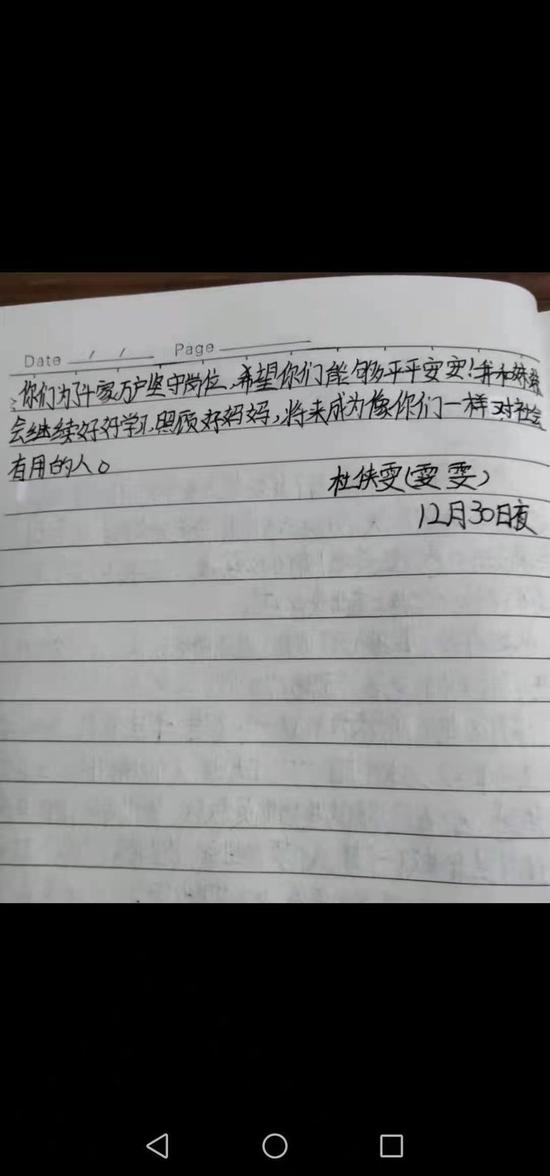 Date / / Page
你们为了千家万户坚守岗位,希望你们能够平平安安!我和妹妹
会继续好好学习,照顾好妈妈,将来成为像你们一样对社会
有用的人。
杜佚雯(雯雯)
12月30日夜